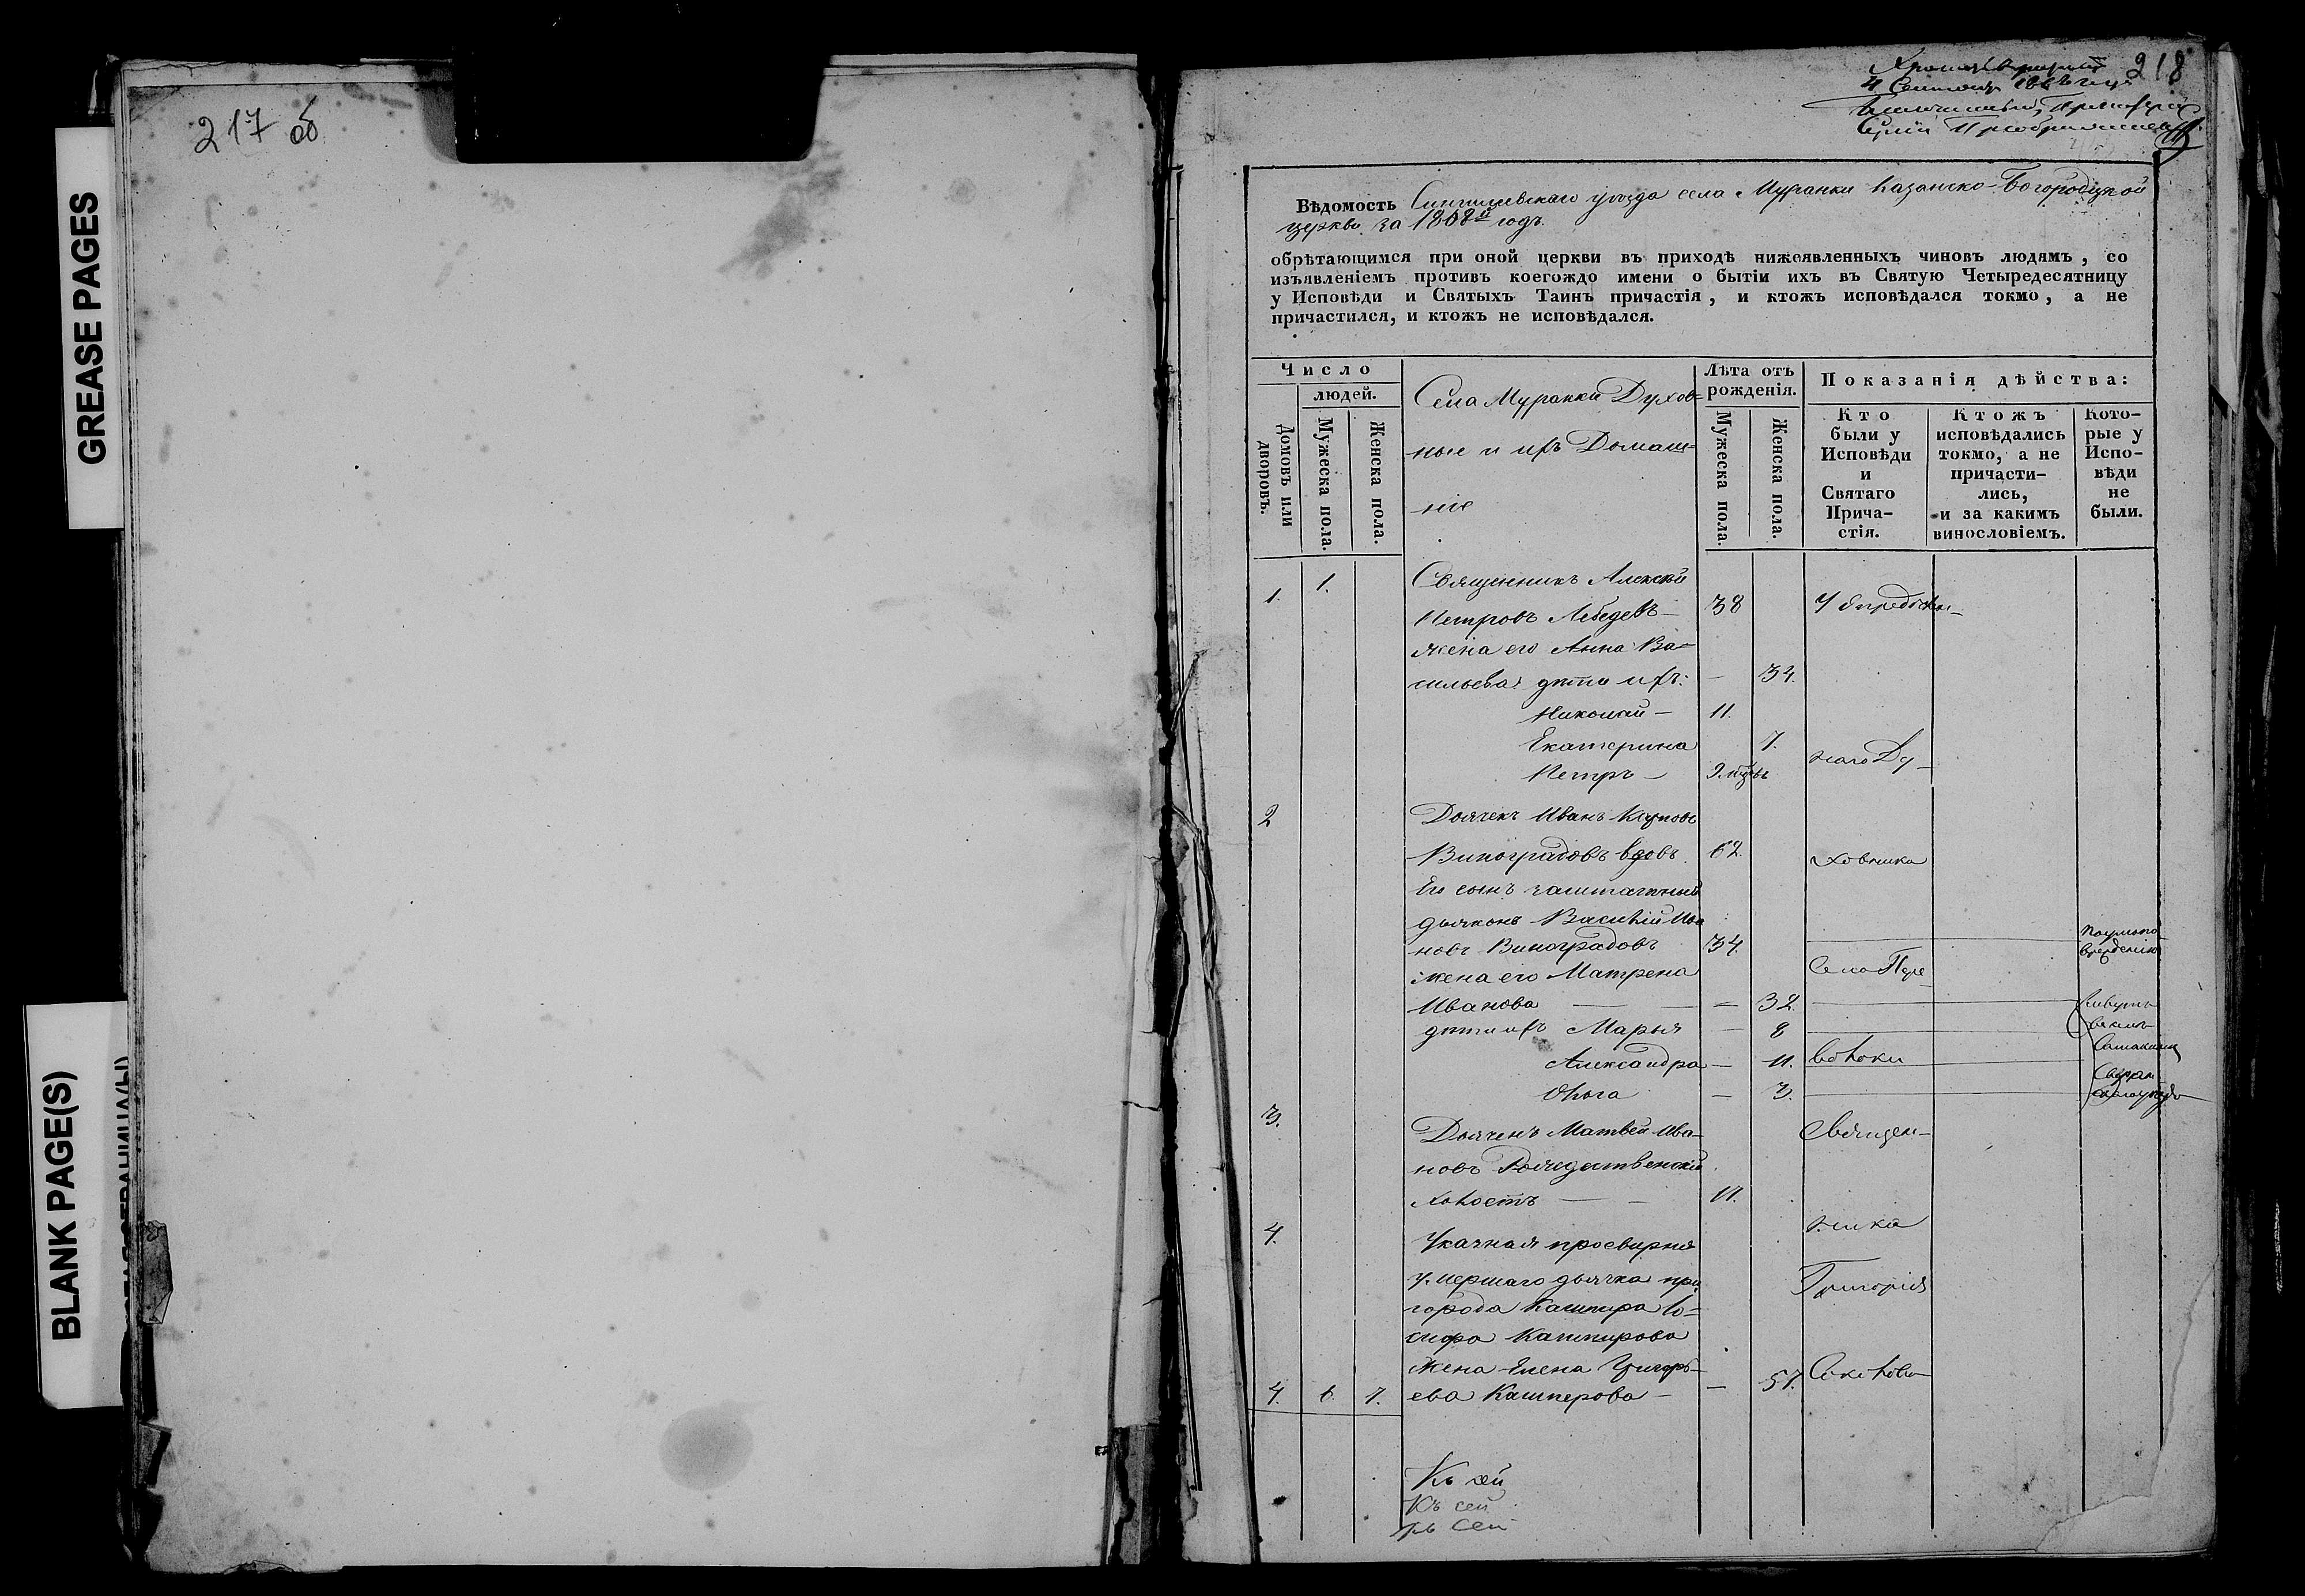 GREASE PAGES
BLANK PAGE(S)
217 об
218
Вѣдомость Сингилеевскаго уѣзда села Муранки Казанско-Богородицкой
церкви за 1868й годъ.
обрѣтающимся при оной церкви въ приходѣ нижеявленныхъ чиновъ людямъ, со
изъявленіемъ противъ коегождо имени о бытіи ихъ въ Святую Четыредесятницу
у Исповѣди и Святыхъ Таинъ причастія, и ктожъ исповѣдался токмо, а не
причастился, и ктожъ не исповѣдался.
Число
людей.
Домовъ или дворовъ.
Мужеска пола.
Женска пола.
Села Муранки Духов=
ные и ихъ Домаш=
ніе
Лѣта отъ
рожденія.
Мужеска пола.
Женска пола.
Показанія дѣйства:
Кто
были у
Исповѣди
и
Святаго
Прича-
стія.
Ктожъ
исповѣдались
токмо, а не
причасти-
лись,
и за какимъ
винословіемъ.
Кото-
рые у
Испо-
вѣди
не
были.
1. 1. Священникъ Алексѣй
Петровъ Лебедевъ — 38
жена его Анна Ва=
сильева: дѣти ихъ: — 34.
Николай — 11.
Екатерина 7.
Петръ — 9.
наго Ду-
2 Дьячекъ Иванъ
Виноградовъ вдовъ. 62.
ховника
Его сынъ заштатный
дьяконъ Василій Ива
новъ Виноградовъ 34.
жена его Матрена
Иванова — — 32.
дѣти ихъ Марья — 8
Александра — 11.
Ольга — 3.
3. Дьячекъ Матвей Ива-
новъ Рождественскій
холостъ —
Священ-
ника
4. Указная просвирня
умершаго дьячка при
города Кашпира Іо=
сифа Кашпирова
жена Елена Григорь-
4. 6. 7. ева Кашперова — — 57.
Григорія
Къ сей
Къ сей
Къ сей